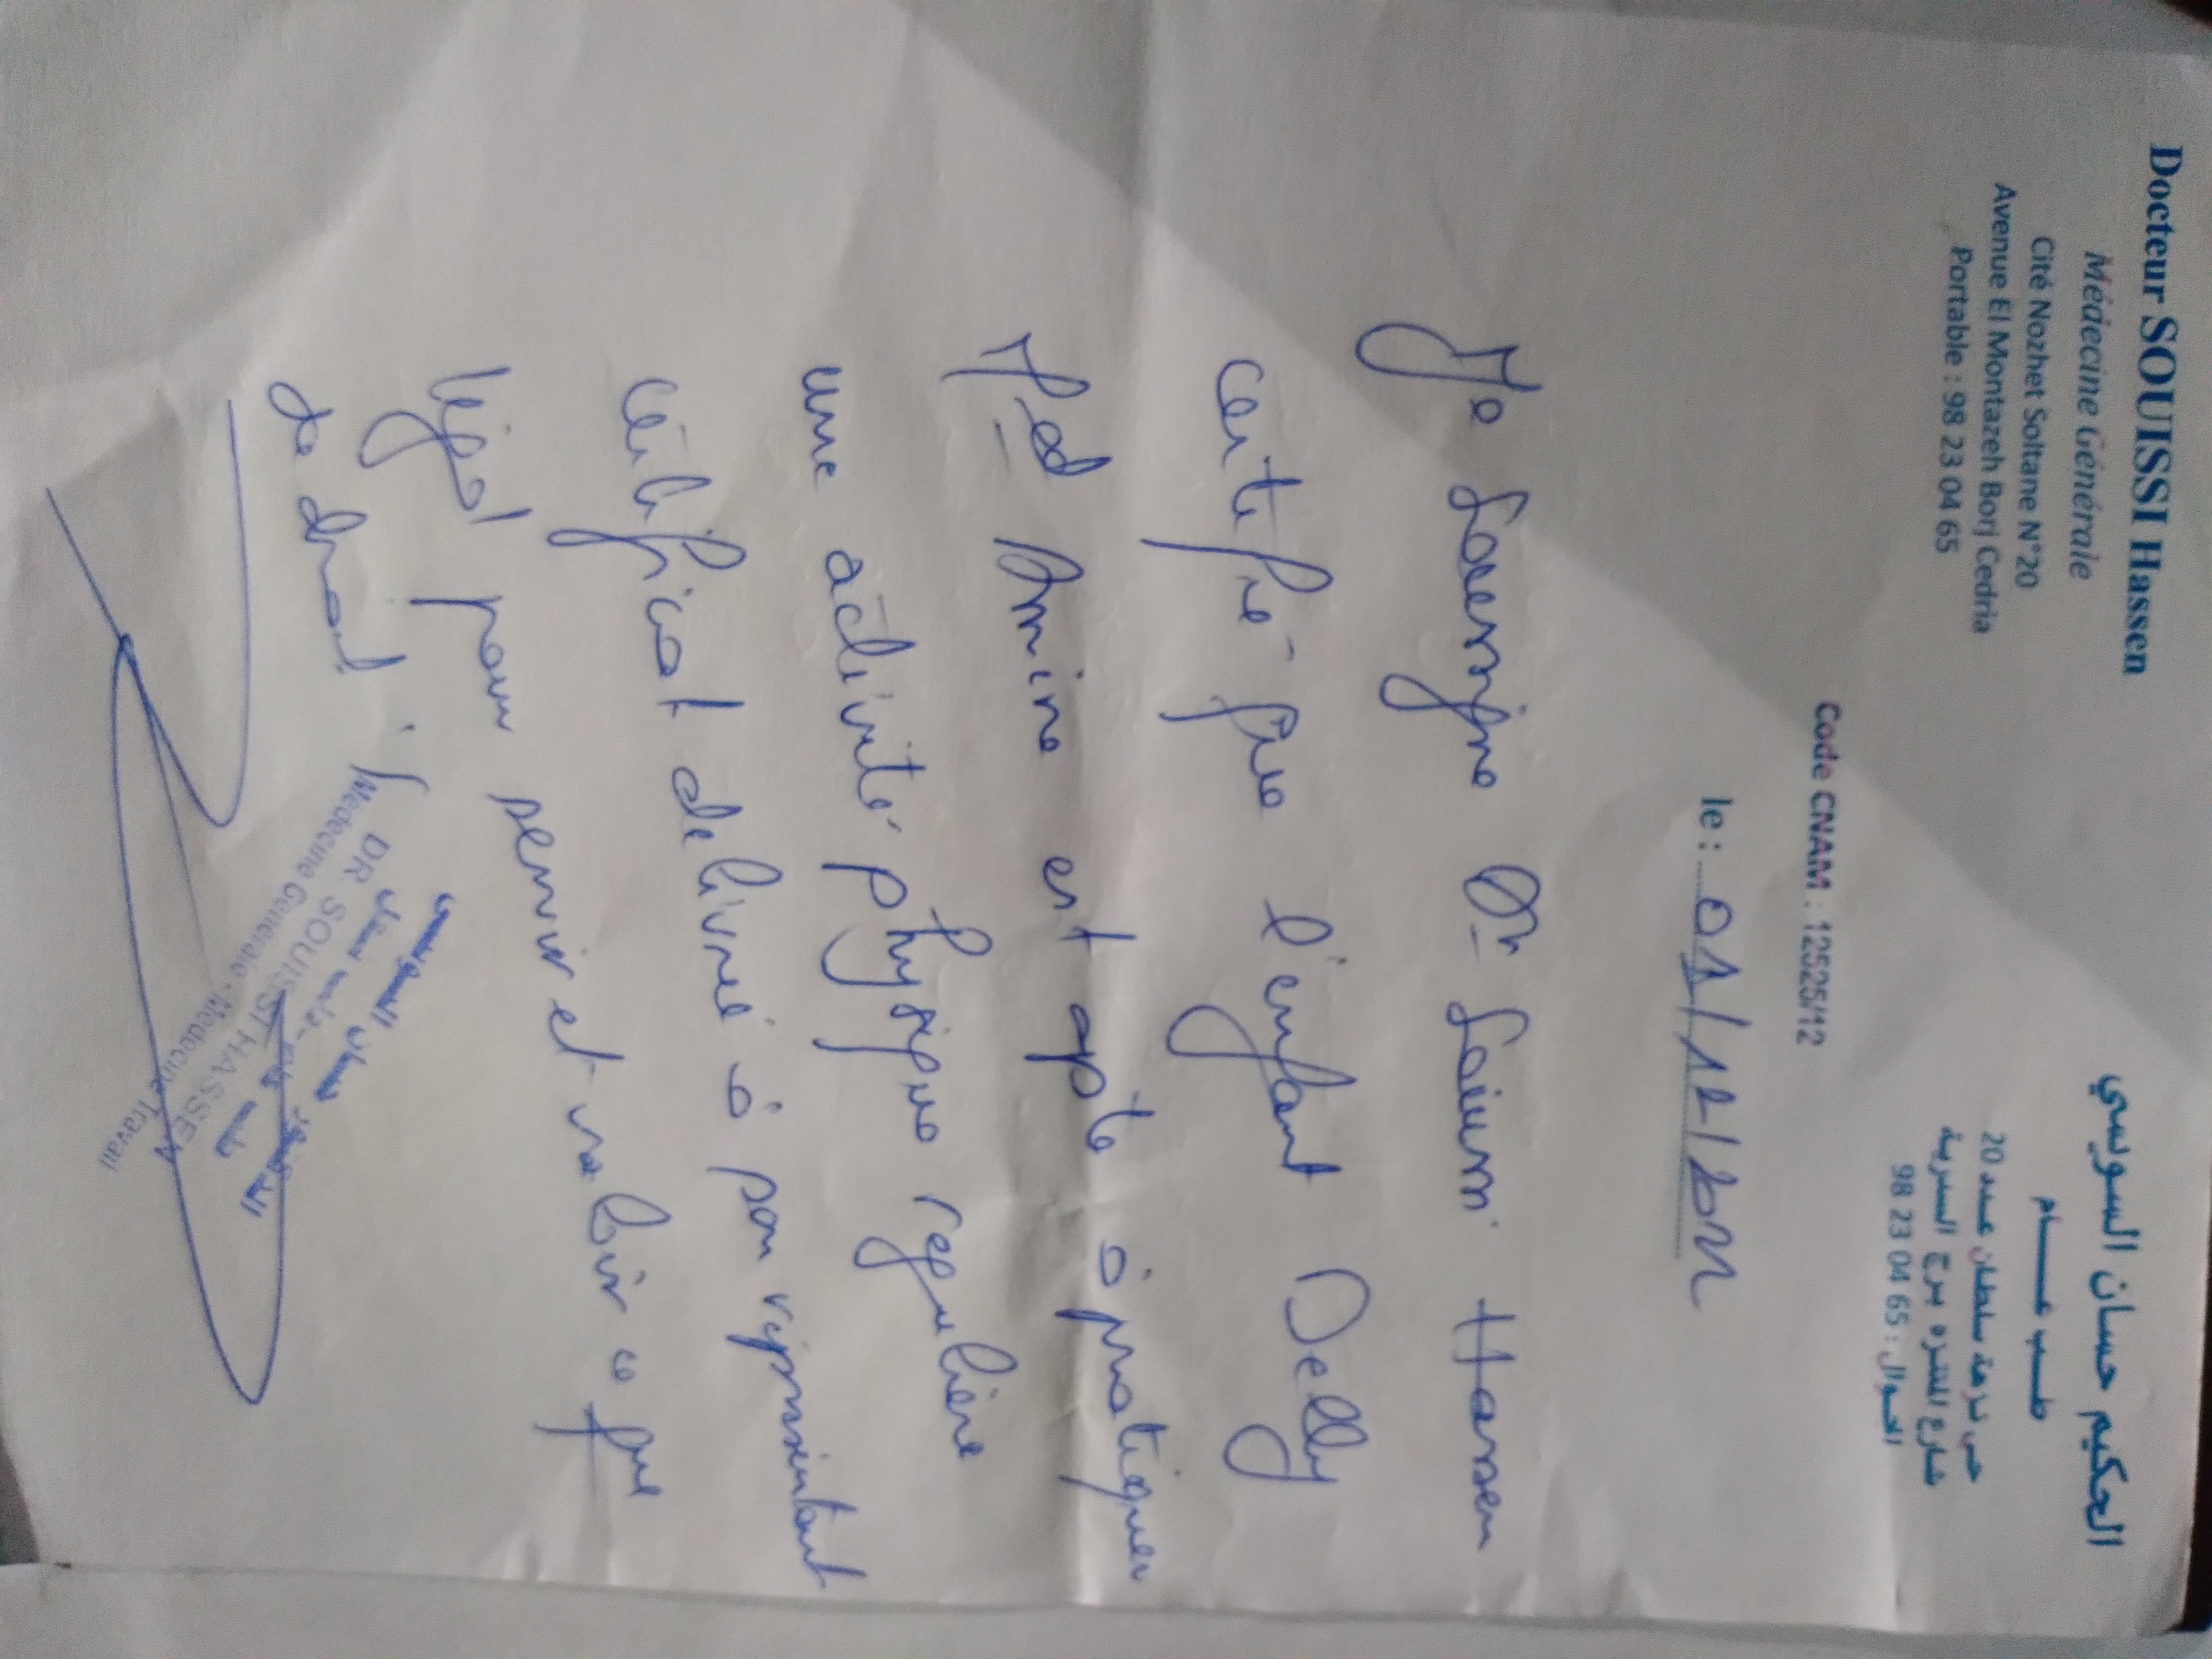 Docteur SOUISSI Hassen
Médecine Générale
Cité Nozhet Soltane N°20
Avenue El Montazeh Borj Cedria
Portable : 98 23 04 65
الحكيم حسان السويسي
طـــب عـــــام
حي نزهة سلطان عـــدد 20
شارع المنتزه برج السدرية
الجوال : 98 23 04 65
Code CNAM : 12525/12
le : 01/12/
Je Soussigné Dr Hassen
certifie que l'enfant Delly
Med Amine est apte à pratiquer
une activité physique regulière
certificat delivrée à son représentant
légal pour servir et valoir ce que
de droit.
DR SOUISSI HASSEN
Médecine Générale - Médecine Travail